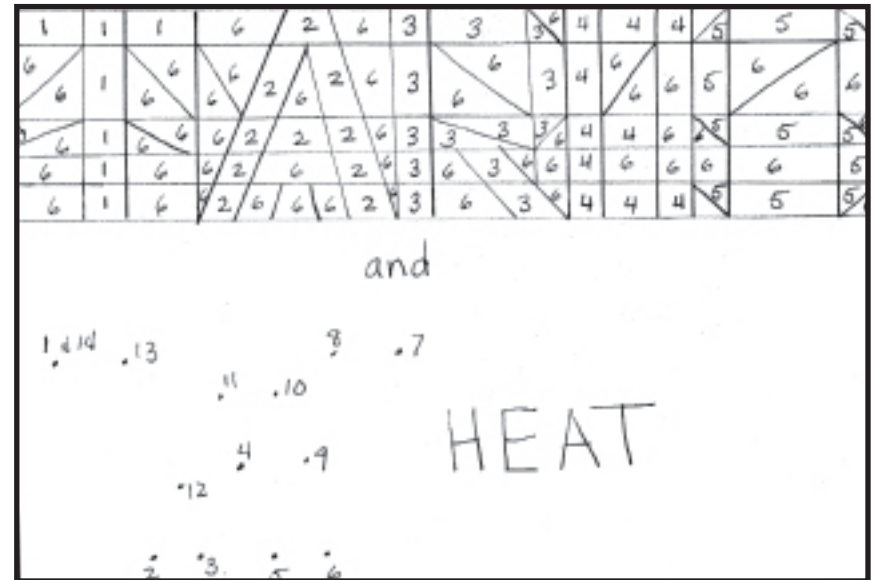 1 1 1 6 2 6 3 3 3 6 4 4 4 5 5 5
6 6 1 6 6 6 6 2 6 2 6 3 6 6 3 4 6 6 6 5 6 6 6
6 1 6 6 6 2 2 2 6 3 3 3 3 6 4 4 6 6 5 5 5
6 1 6 6 2 6 2 6 3 6 3 6 6 4 6 6 6 6 5
6 1 6 2 6 6 6 2 3 6 3 6 4 4 4 5 5 5
and
8 .7
1 & 14 .13
11 .10
HEAT
4 .9
.12
2 3. 5 6